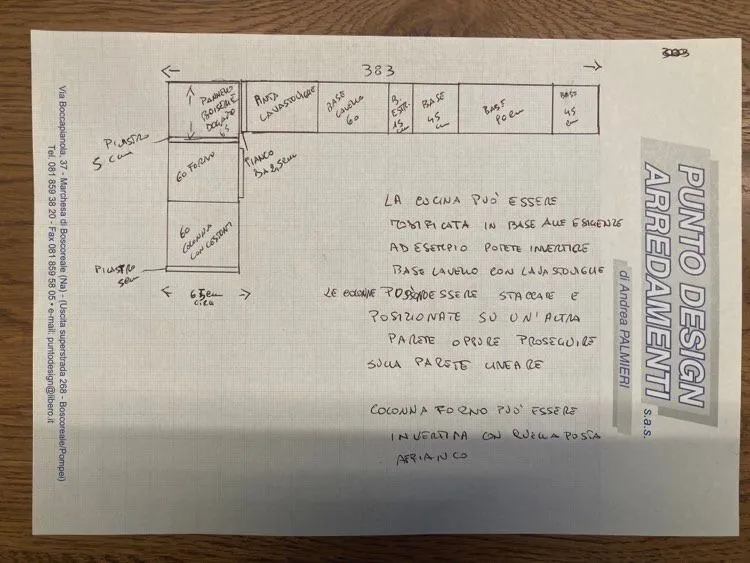 383
PANNELLO
BOISERIE
DOGATO
65
ANTA
LAVASTOVIGLIE
BASE
LAVELLO
60
B
ESTR.
15
cm
BASE
45
cm
BASE
90cm
BASE
45
cm
PILASTRO
5 cm
FIANCO
DA 2,5cm
60 FORNO
60
COLONNA
CON CESTONI
PILASTRO
5cm
65cm
circa
LA CUCINA PUO' ESSERE
MODIFICATA IN BASE ALLE ESIGENZE
AD ESEMPIO POTETE INVERTIRE
BASE LAVELLO CON LAVASTOVIGLIE
LE COLONNE POSSONO ESSERE STACCARE E
POSIZIONATE SU UN'ALTRA
PARETE OPPURE PROSEGUIRE
SULLA PARETE LINEARE
COLONNA FORNO PUO' ESSERE
INVERTITA CON QUELLA POSTA
AFFIANCO
PUNTO DESIGN
ARREDAMENTI s.a.s.
di Andrea PALMIERI
Via Boccapianola, 37 - Marchesa di Boscoreale (Na) - (Uscita superstrada 268 - Boscoreale/Pompei)
Tel. 081 859 38 20 - Fax 081 859 58 05 • e-mail: puntodesign@libero.it